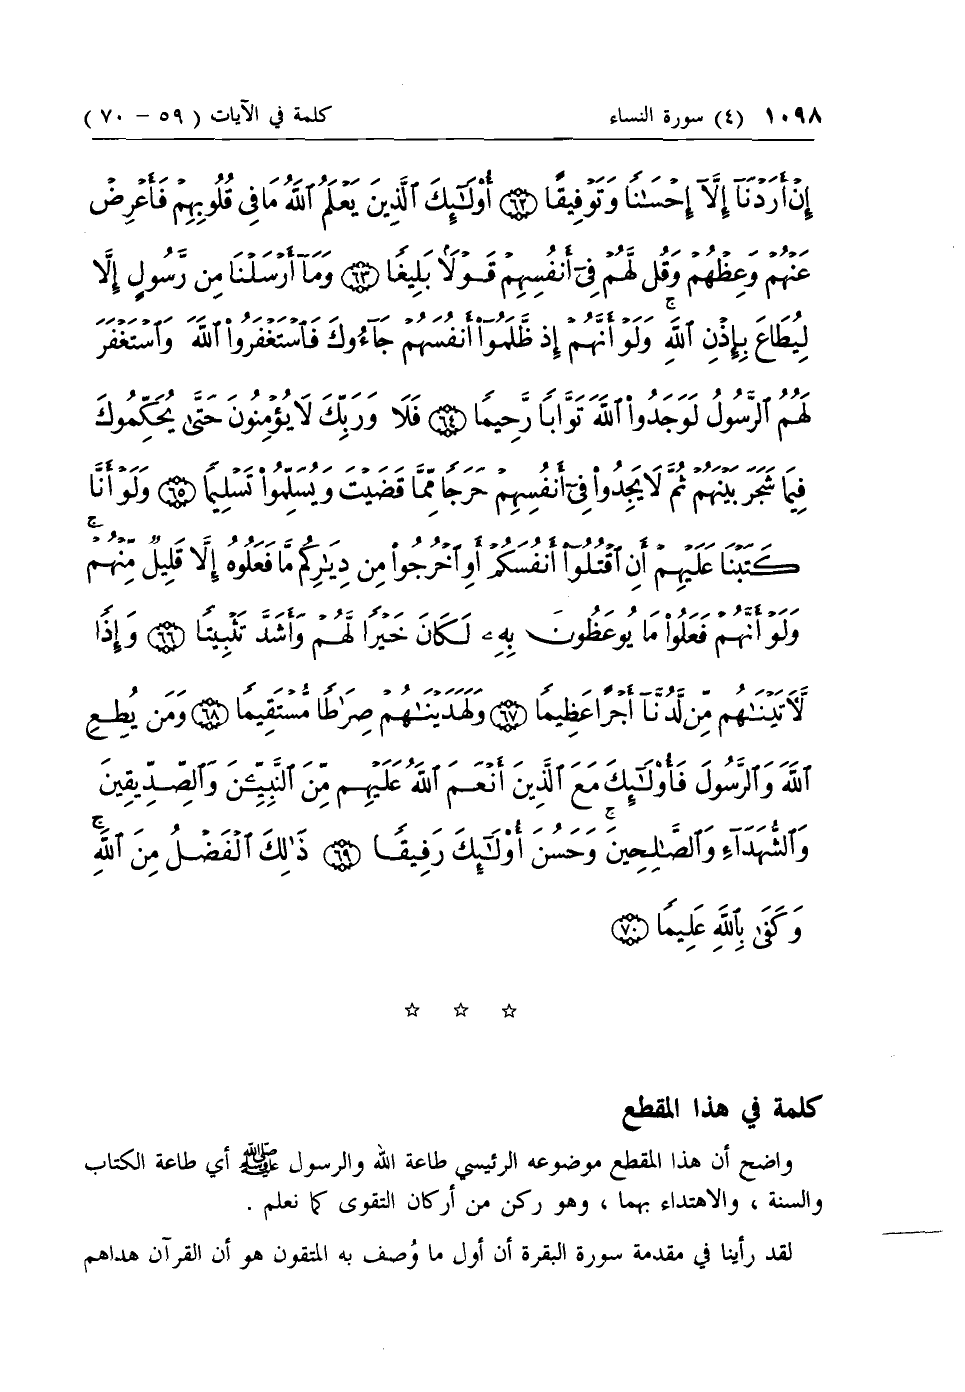 ١٠٩٨ (٤) سورة النساء كلمة في الآيات ( ٥٩ – ٧٠ )
إِنْ أَرَدْنَآ إِلَّآ إِحْسَٰنًا وَتَوْفِيقًا ﴿٦٢﴾ أُو۟لَٰٓئِكَ ٱلَّذِينَ يَعْلَمُ ٱللَّهُ مَا فِى قُلُوبِهِمْ فَأَعْرِضْ
عَنْهُمْ وَعِظْهُمْ وَقُل لَّهُمْ فِىٓ أَنفُسِهِمْ قَوْلًۢا بَلِيغًا ﴿٦٣﴾ وَمَآ أَرْسَلْنَا مِن رَّسُولٍ إِلَّا
لِيُطَاعَ بِإِذْنِ ٱللَّهِ ۚ وَلَوْ أَنَّهُمْ إِذ ظَّلَمُوٓا۟ أَنفُسَهُمْ جَآءُوكَ فَٱسْتَغْفَرُوا۟ ٱللَّهَ وَٱسْتَغْفَرَ
لَهُمُ ٱلرَّسُولُ لَوَجَدُوا۟ ٱللَّهَ تَوَّابًا رَّحِيمًا ﴿٦٤﴾ فَلَا وَرَبِّكَ لَا يُؤْمِنُونَ حَتَّىٰ يُحَكِّمُوكَ
فِيمَا شَجَرَ بَيْنَهُمْ ثُمَّ لَا يَجِدُوا۟ فِىٓ أَنفُسِهِمْ حَرَجًا مِّمَّا قَضَيْتَ وَيُسَلِّمُوا۟ تَسْلِيمًا ﴿٦٥﴾ وَلَوْ أَنَّا
كَتَبْنَا عَلَيْهِمْ أَنِ ٱقْتُلُوٓا۟ أَنفُسَكُمْ أَوِ ٱخْرُجُوا۟ مِن دِيَٰرِكُم مَّا فَعَلُوهُ إِلَّا قَلِيلٌ مِّنْهُمْ ۖ
وَلَوْ أَنَّهُمْ فَعَلُوا۟ مَا يُوعَظُونَ بِهِۦ لَكَانَ خَيْرًا لَّهُمْ وَأَشَدَّ تَثْبِيتًا ﴿٦٦﴾ وَإِذًا
لَّءَاتَيْنَٰهُم مِّن لَّدُنَّآ أَجْرًا عَظِيمًا ﴿٦٧﴾ وَلَهَدَيْنَٰهُمْ صِرَٰطًا مُّسْتَقِيمًا ﴿٦٨﴾ وَمَن يُطِعِ
ٱللَّهَ وَٱلرَّسُولَ فَأُو۟لَٰٓئِكَ مَعَ ٱلَّذِينَ أَنْعَمَ ٱللَّهُ عَلَيْهِم مِّنَ ٱلنَّبِيِّۦنَ وَٱلصِّدِّيقِينَ
وَٱلشُّهَدَآءِ وَٱلصَّٰلِحِينَ ۚ وَحَسُنَ أُو۟لَٰٓئِكَ رَفِيقًا ﴿٦٩﴾ ذَٰلِكَ ٱلْفَضْلُ مِنَ ٱللَّهِ ۚ
وَكَفَىٰ بِٱللَّهِ عَلِيمًا ﴿٧٠﴾
☆ ☆ ☆
كلمة في هذا المقطع
واضح أن هذا المقطع موضوعه الرئيسي طاعة الله والرسول ﷺ أي طاعة الكتاب
والسنة ، والاهتداء بهما ، وهو ركن من أركان التقوى كما نعلم .
لقد رأينا في مقدمة سورة البقرة أن أول ما وُصف به المتقون هو أن القرآن هداهم